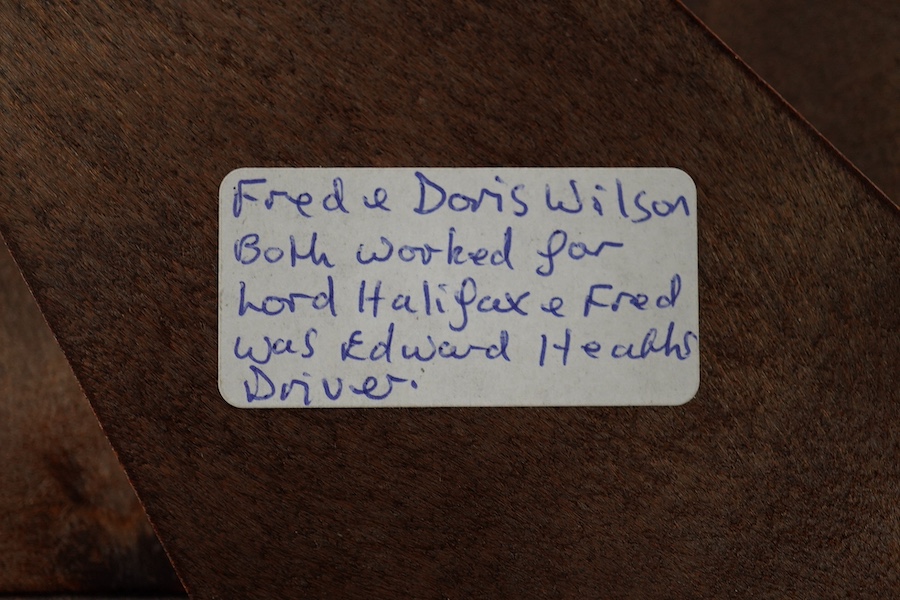 Fred e Doris Wilson
Both worked for
Lord Halifax e Fred
was Edward Heaths
Driver.